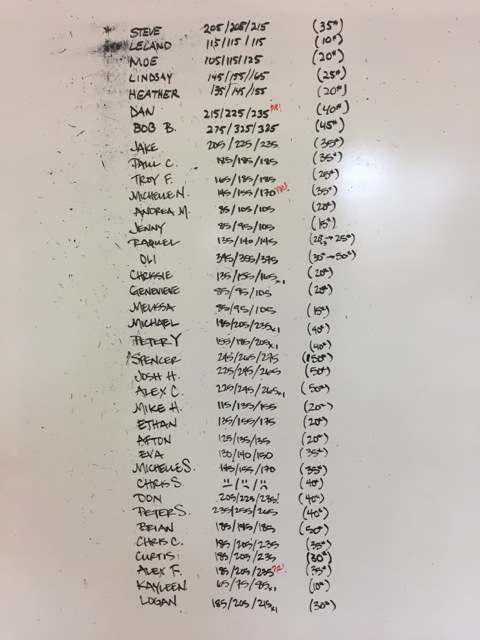 STEVE 205/205/215 (35#)
LELAND 115/115/115 (10#)
MOE 105/115/125 (20#)
LINDSAY 145/155/165 (25#)
HEATHER 135/145/155 (20#)
DAN 215/225/235 PR! (40#)
BOB B. 275/325/325 (45#)
JAKE 205/225/235 (35#)
PAUL C. 185/185 (35#)
TROY F. 165/185/185 (25#)
MICHELLE N. 145/155/170 PR! (35#)
ANDREA M. 85/105/105 (20#)
JENNY 85/95/105 (15#)
RAQUEL 135/140/145
OLI 345/355/375 (30#→50#)
CHRISSIE 135/155/165x1 (20#)
GENEVIEVE 85/95/105 (20#)
MELISSA 85/95/105 (15#)
MICHAEL 185/205/235x1 (40#)
PETER Y 155/185/205x1 (40#)
SPENCER 245/265/275 (50#)
JOSH H. 225/245/265 (50#)
ALEX C. 225/245/265x1 (50#)
MIKE H. 115/135/155 (20#)
ETHAN 135/155/175 (20#)
AFTON 125/135/135 (20#)
EVA 130/140/150 (35#)
MICHELLE S. 145/155/170 (35#)
CHRIS S. (40#)
DON 205/225/235! (40#)
PETER S. 235/255/265 (40#)
BRIAN 185/185/185 (50#)
CHRIS C. 185/205/235 (35#)
CURTIS 185/205/235 (30#)
ALEX F. 185/205/235 PR! (35#)
KAYLEEN 65/75/85x1 (10#)
LOGAN 185/205/215x1 (30#)